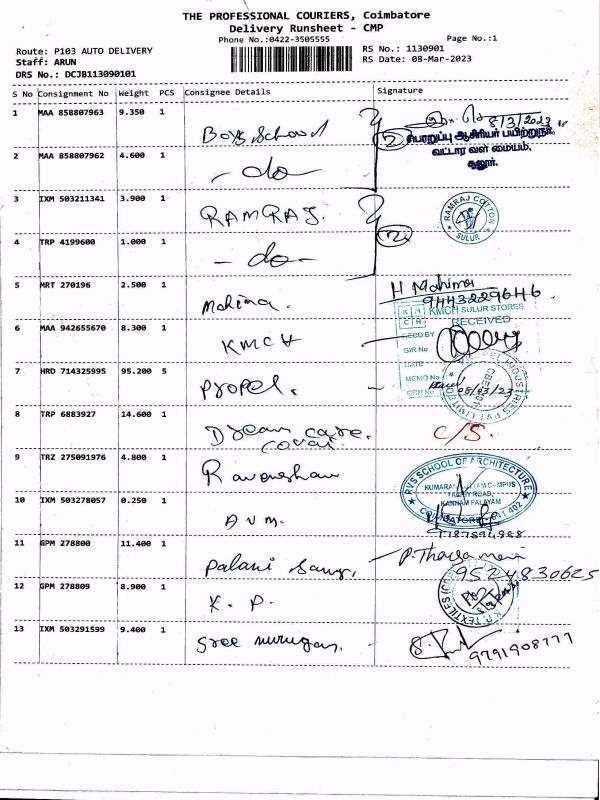 THE PROFESSIONAL COURIERS, Coimbatore
Delivery Runsheet - CMP
Phone No.:0422-3505555
Page No.:1
Route: P103 AUTO DELIVERY
RS No.: 1130901
Staff: ARUN
RS Date: 08-Mar-2023
DRS No.: DCJB113090101
S No Consignment No Weight PCS Consignee Details Signature
1 MAA 858807963 9.350 1 Boys School 2 8/3/2023
பொறுப்பு ஆசிரியர் பயிற்றுநர்,
வட்டார வள மையம்,
சூலூர்.
2 MAA 858807962 4.600 1 - do -
3 IXM 503211341 3.900 1 RAMRAJ. RAMRAJ COTTON SULUR
4 TRP 4199600 1.000 1 - do - 2
5 MRT 270196 2.500 1 Mahima. H Mahima
9443229646.
KMCH SULUR STORES
RECEIVED
6 MAA 942655670 8.300 1 KMCH RECD BY
GIR No
DATE
7 HRD 714325995 95.200 5 Propel. MEMO No
GEM No 08/03/23
8 TRP 6883927 14.600 1 Dream care. C/S.
9 TRZ 275091976 4.800 1 RVS SCHOOL OF ARCHITECTURE
KUMARAN KOTTAM CAMPUS
TRICHY ROAD,
KANNAM PALAYAM
COIMBATORE - 641 402
10 IXM 503278057 0.250 1 AVM.
11 GPM 278800 11.400 1 Palani
9524830625
12 GPM 278809 8.900 1 K. P. K.P. TEXTILES
13 IXM 503291599 9.400 1 Sree murugan. 9791908777